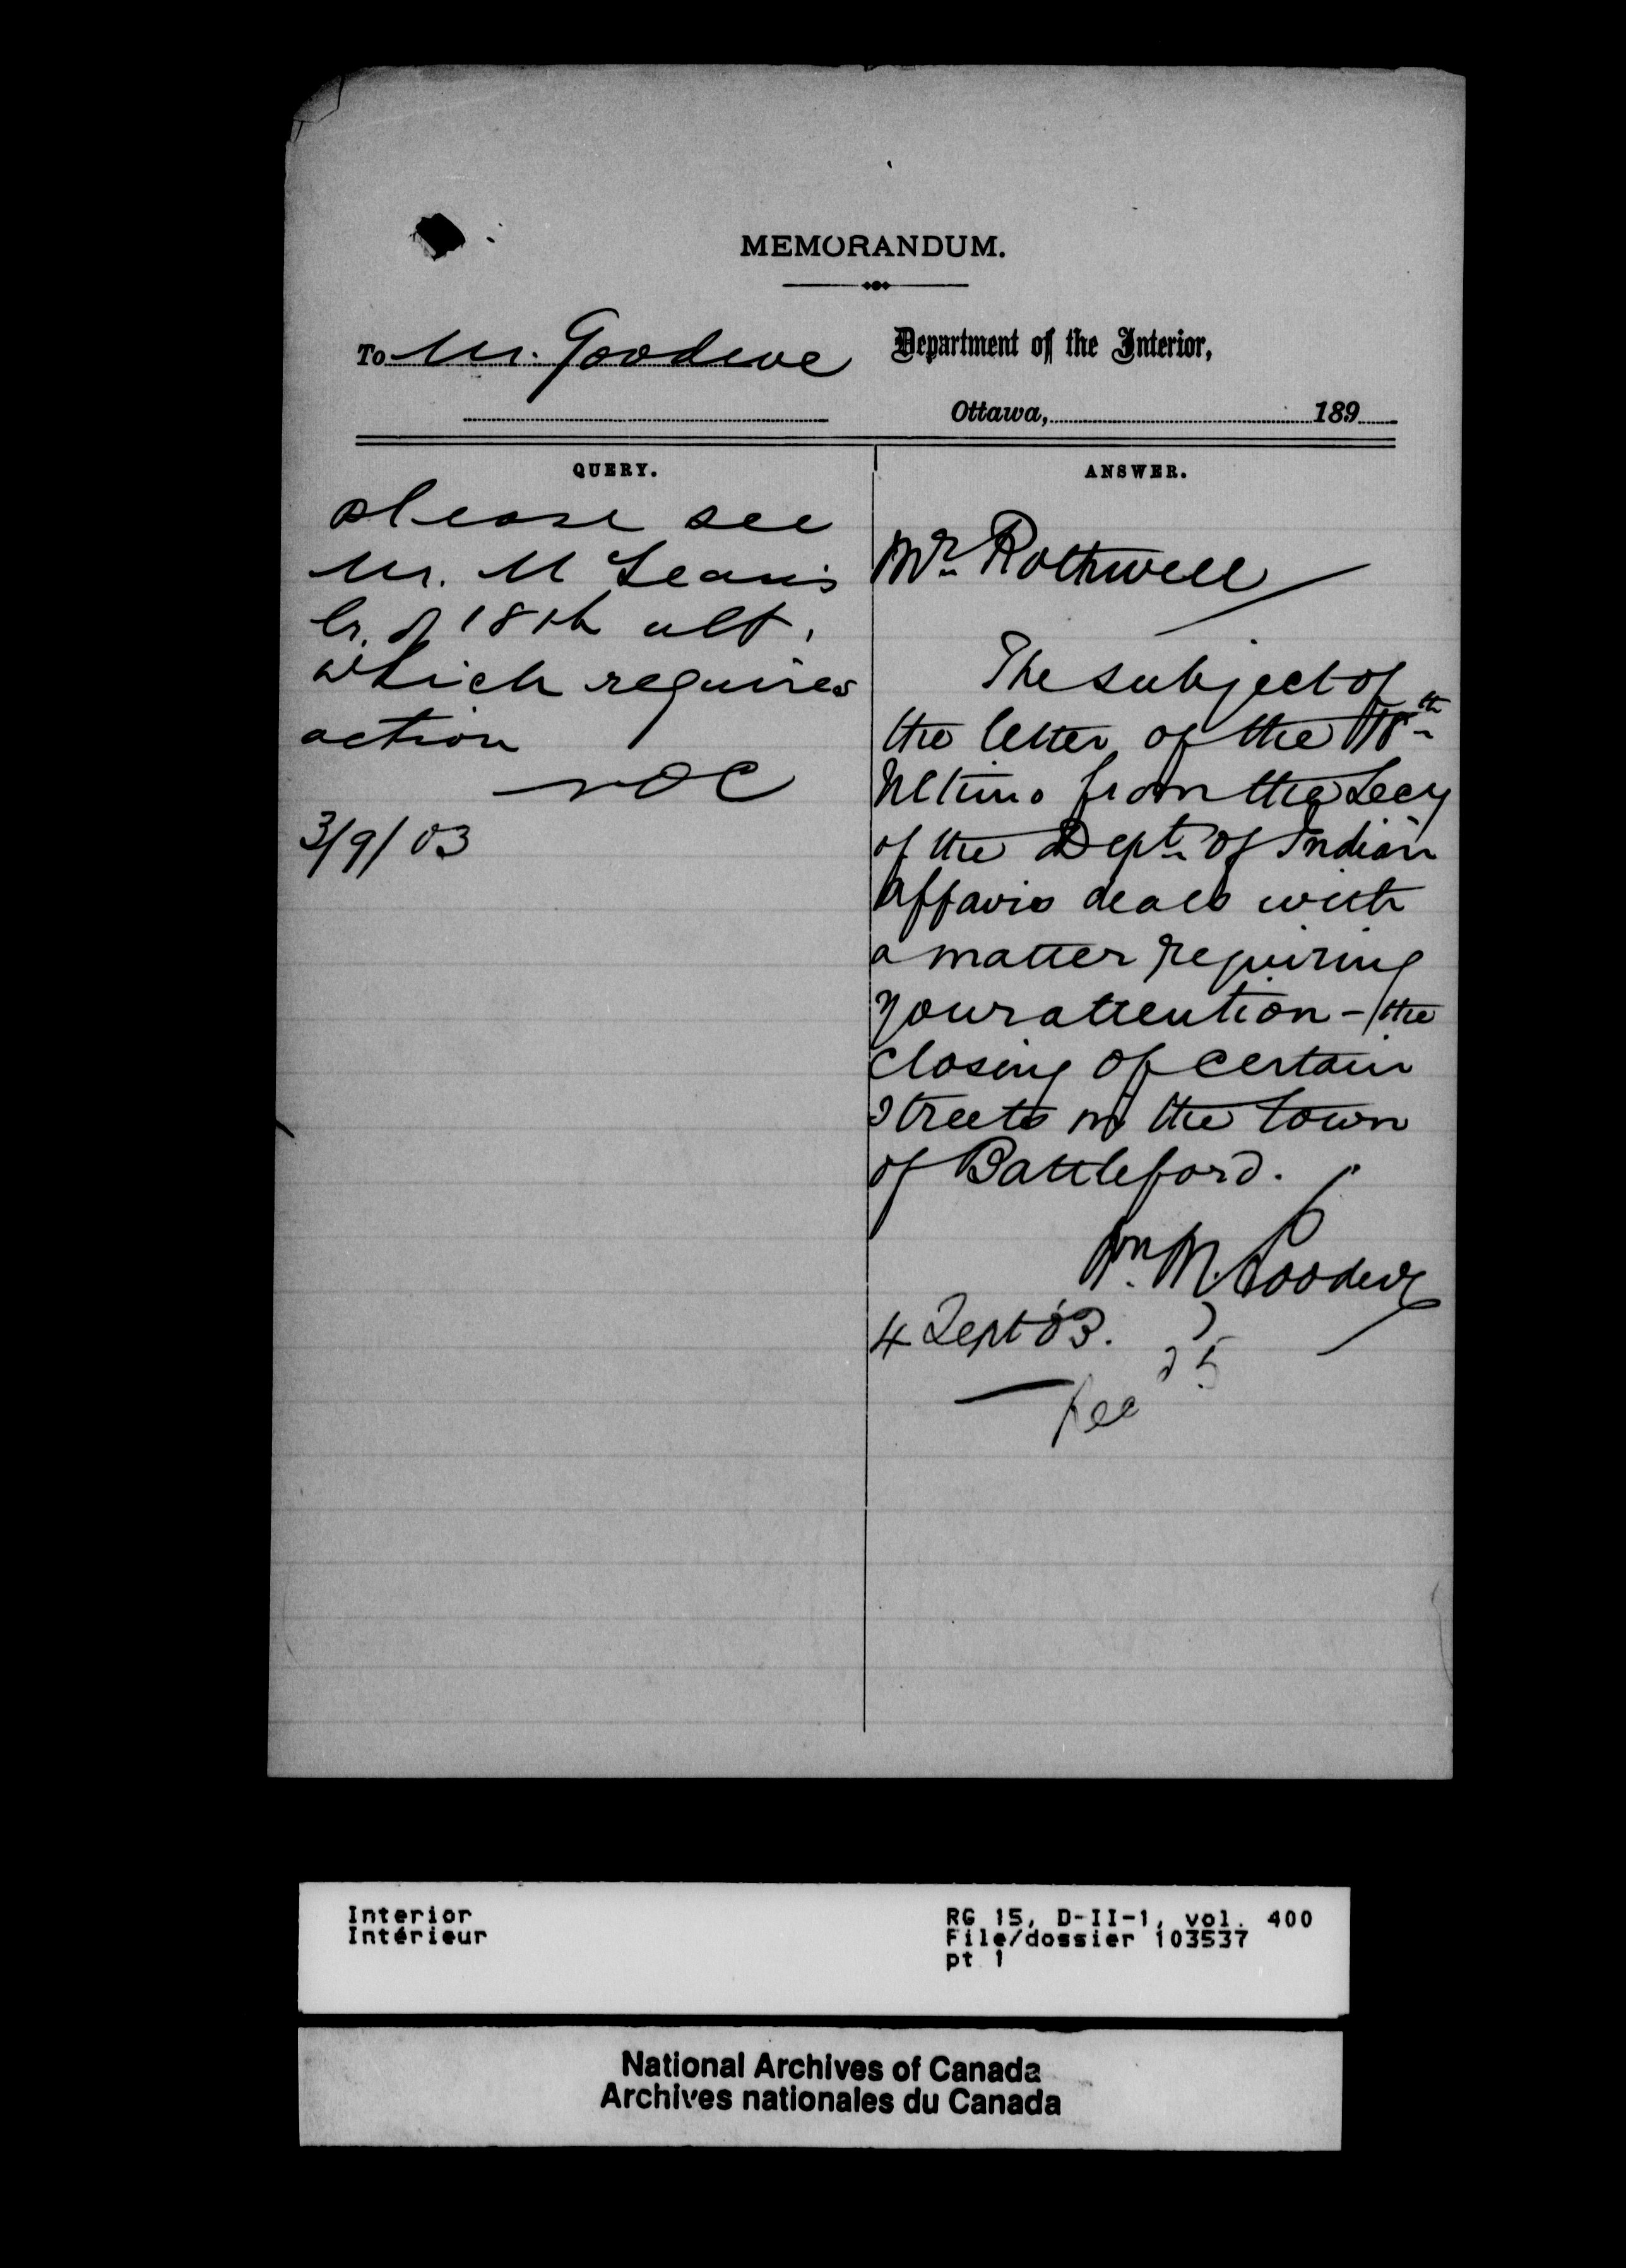 MEMORANDUM.
To Mr. Goodeve
Department of the Interior,
Ottawa, 189
QUERY.
please see
Mr. McLean's
lr. of 18th ult.
which requires
action
3/9/03
ANSWER.
Mr. Rothwell
The subject of
the letter of the 18th
Ultimo from the Secy
of the Dept. of Indian
Affairs deals with
a matter requiring
your attention - the
closing of certain
streets in the town
of Battleford.
Wm M. Goodeve
4 Sept 03.
25
Interior
Intérieur
RG 15, D-II-1, vol. 400
File/dossier 103537
pt 1
National Archives of Canada
Archives nationales du Canada